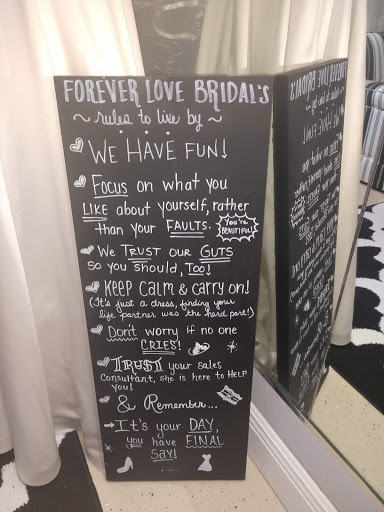 FOREVER LOVE BRIDAL's
~ rules to live by ~
WE HAVE FUN!
FOCUS on what you
LIKE about yourself, rather
than your FAULTS.
You're
BEAUTIFUL!
We TRUST our GUTS
so you should, Too!
KEEP CALM & CARRY ON!
(It's just a dress, finding your
life partner was the hard part!)
Don't worry if no one
CRIES!
TRUST your sales
consultant, she is here to HELP
you!
& Remember...
It's your DAY,
you have FINAL
SAY!